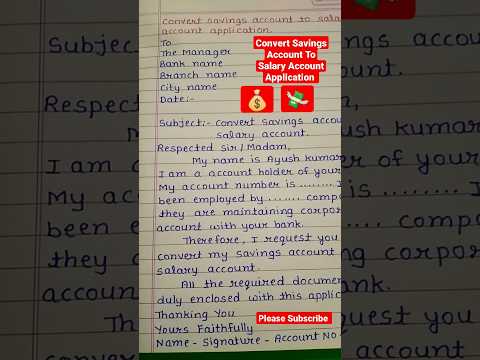 convert savings account to sala
account application.
To
The Manager
Bank name
Branch name
City name
Date:-
Convert Savings
Account To
Salary Account
Application
Subject:- convert savings accou
salary account.
Respected Sir/Madam,
My name is Ayush kumar
I am a account holder of your
My account number is ........ I
been employed by ....... comp
they are maintaining corpor
account with your bank.
Therefore, I request you
convert my savings account
salary account.
All the required documen
duly enclosed with this applic
Thanking You
Yours Faithfully
Name - Signature - Account No
Please Subscribe